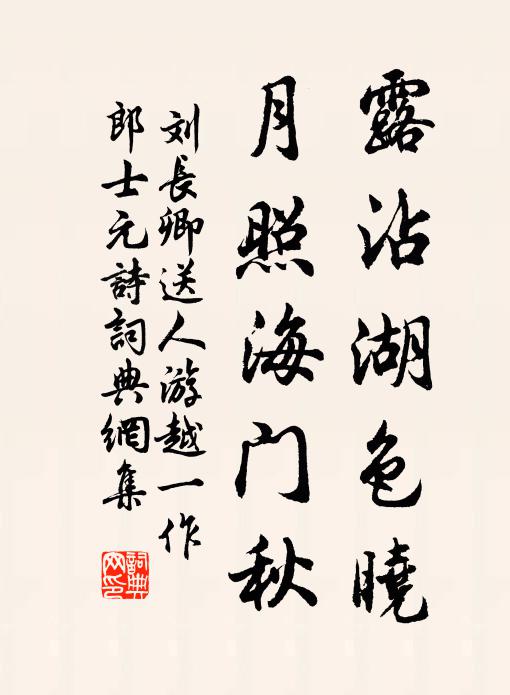 露沾湖色曉
月照海门秋
刘長卿送人游越一作
郎士元詩詞典網集
詞典网印